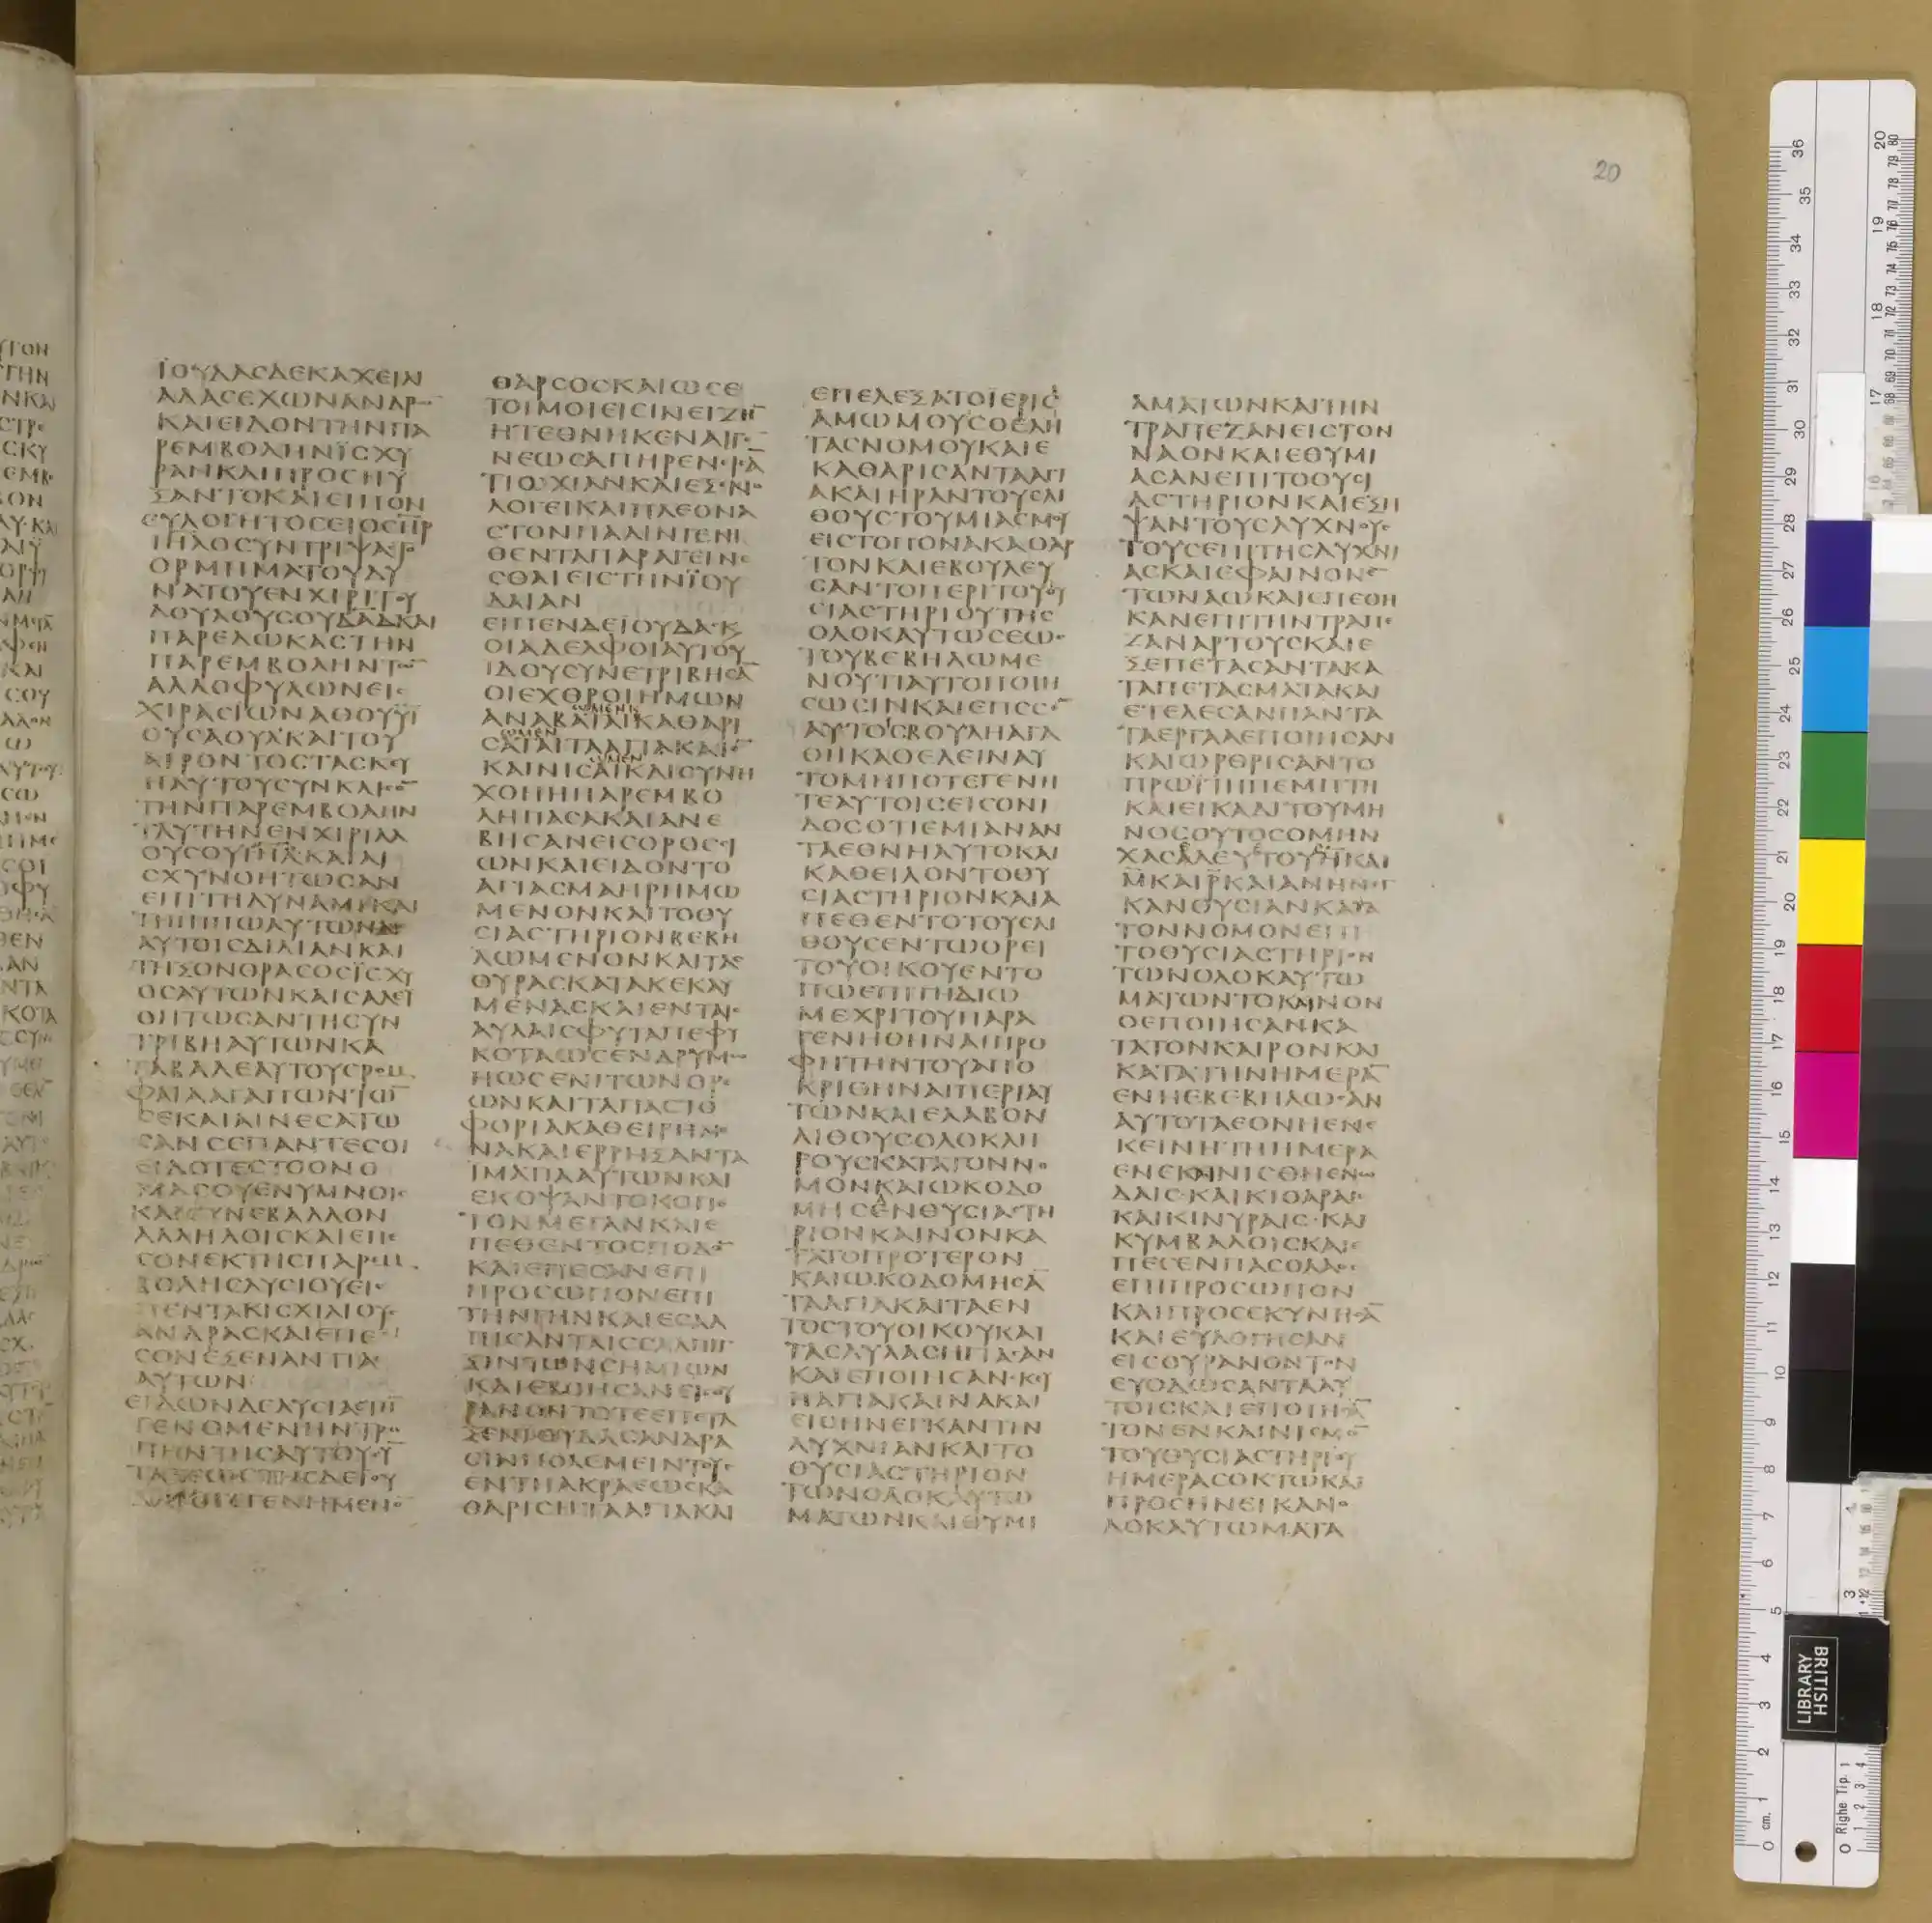 20
ΪΟΥΔΑСΔΕΚΑΧΕΙΛΙ
ΑΔΑСΕΧΩΝΑΝΔΡ
ΚΑΙΕΙΔΟΝΤΗΝΠΑ
ΡΕΜΒΟΛΗΝΪСΧΥ
ΡΑΝΚΑΙΠΡΟСΗΥ
ΞΑΝΤΟΚΑΙΕΙΠΟΝ
ΕΥΛΟΓΗΤΟСΕΙΟСΗΡ
ΙΗΛΟСΥΝΤΡΙΨΑСΤΟ
ΟΡΜΗΜΑΤΟΥΔΥ
ΝΑΤΟΥΕΝΧΙΡΙΤΟΥ
ΔΟΥΛΟΥСΟΥΔΑΔΚΑΙ
ΠΑΡΕΔΩΚΑСΤΗΝ
ΠΑΡΕΜΒΟΛΗΝΤΩ
ΑΛΛΟΦΥΛΩΝΕΙС
ΧΙΡΑСΙΩΝΑΘΟΥΥΪ
ΟΥСΑΟΥΛΚΑΙΤΟΥ
ΑΙΡΟΝΤΟСΤΑСΚΕΥ
ΗΑΥΤΟΥСΥΝΚΛΙСΟ
ΤΗΝΠΑΡΕΜΒΟΛΗΝ
ΤΑΥΤΗΝΕΝΧΙΡΙΛΑ
ΟΥСΟΥΙΗΛΚΑΙΑΙ
СΧΥΝΘΗΤΩСΑΝ
ΕΠΙΤΗΔΥΝΑΜΙΚΑΙ
ΤΗΙΠΠΩΑΥΤΩΝΔΟС
ΑΥΤΟΙСΔΙΛΙΑΝΚΑΙ
ΤΗΞΟΝΘΡΑСΟСΪСΧΥ
ΟСΑΥΤΩΝΚΑΙСΑΛΕΥ
ΘΗΤΩСΑΝΤΗСΥΝ
ΤΡΙΒΗΑΥΤΩΝΚΑ
ΤΑΒΑΛΕΑΥΤΟΥСΡΟΜ
ΦΑΙΑΑΓΑΠΩΝΤΩ
СΕΚΑΙΑΙΝΕСΑΤΩ
СΑΝСΕΠΑΝΤΕСΟΙ
ΕΙΔΟΤΕСΤΟΟΝΟ
ΜΑСΟΥΕΝΥΜΝΟΙС
ΚΑΙСΥΝΕΒΑΛΛΟΝ
ΑΛΛΗΛΟΙСΚΑΙΕΠΕ
СΟΝΕΚΤΗСΠΑΡΕΜ
ΒΟΛΗСΛΥСΙΟΥΕΙС
ΠΕΝΤΑΚΙСΧΙΛΙΟΥС
ΑΝΔΡΑСΚΑΙΕΠΕ
СΟΝΕΞΕΝΑΝΤΙΑС
ΑΥΤΩΝ
ΕΙΔΩΝΔΕΛΥСΙΑСΤΗ
ΓΕΝΟΜΕΝΗΝΤΡΟ
ΠΗΝΤΗСΑΥΤΟΥСΥ
ΤΑΞΕΩСΤΗСΔΕΙΟΥ
ΔΟΥΤΟΓΕΓΕΝΗΜΕΝΟ
ΘΑΡСΟСΚΑΙΩСΕ
ΤΟΙΜΟΙΕΙСΙΝΕΙΖΗ
ΗΤΕΘΝΗΚΕΝΑΙΓΕ
ΝΕΩСΑΠΗΡΕΝΕΙΑ
ΤΙΟΧΙΑΝΚΑΙΕΞΕΝΟ
ΛΟΓΕΙΚΑΙΠΛΕΟΝΑ
СΤΟΝΠΑΛΙΝΓΕΝΗ
ΘΕΝΤΑΠΑΡΑΓΕΙΝΕ
СΘΑΙΕΙСΤΗΝΪΟΥ
ΔΑΙΑΝ
ΕΙΠΕΝΔΕΪΟΥΔΑСΚ
ΟΙΑΔΕΛΦΟΙΑΥΤΟΥ
ΙΔΟΥСΥΝΕΤΡΙΒΗСΑ
ΟΙΕΧΘΡΟΙΗΜΩΝ
ΑΝΑΒΑΙΑΙΚΑΘΑΡΙ
СΑΙΑΙΤΑΑΓΙΑΚΑΙΕ
ΚΑΙΝΙСΑΙΚΑΙСΥΝΗ
ΧΘΗΗΠΑΡΕΜΒΟ
ΛΗΠΑСΑΚΑΙΑΝΕ
ΒΗСΑΝΕΙСΟΡΟССΙ
ΩΝΚΑΙΕΙΔΟΝΤΟ
ΑΓΙΑСΜΑΗΡΗΜΩ
ΜΕΝΟΝΚΑΙΤΟΘΥ
СΙΑСΤΗΡΙΟΝΒΕΒΗ
ΛΩΜΕΝΟΝΚΑΙΤΑС
ΘΥΡΑСΚΑΤΑΚΕΚΑΥ
ΜΕΝΑСΚΑΙΕΝΤΑΙС
ΑΥΛΑΙСΦΥΤΑΠΕΦΥ
ΚΟΤΑΩСΕΝΔΡΥΜΩ
ΗΩСΕΝΙΤΩΝΟΡΕ
ΩΝΚΑΙΤΑΠΑСΤΟ
ΦΟΡΙΑΚΑΘΕΙΡΗΜΕ
ΝΑΚΑΙΕΡΡΗΞΑΝΤΑ
ΪΜΑΤΙΑΑΥΤΩΝΚΑΙ
ΕΚΟΨΑΝΤΟΚΟΠΕ
ΤΟΝΜΕΓΑΝΚΑΙΕ
ΠΕΘΕΝΤΟСΠΟΔΟ
ΚΑΙΕΠΕСΑΝΕΠΙ
ΠΡΟСΩΠΟΝΕΠΙ
ΤΗΝΓΗΝΚΑΙΕСΑΛ
ΠΙСΑΝΤΑΙССΑΛΠΙΓ
ΞΙΝΤΩΝСΗΜΙΩΝ
ΚΑΙΕΒΟΗСΑΝΕΙСΟΥ
ΡΑΝΟΝΤΟΤΕΕΠΕΤΑ
ΞΕΝΙΟΥΔΑСΑΝΔΡΑ
СΙΝΠΟΛΕΜΕΙΝΤΟΥС
ΕΝΤΗΑΚΡΑΕΩСΚΑ
ΘΑΡΙСΗΤΑΑΓΙΑΚΑΙ
ΕΠΕΛΕΞΑΤΟΪΕΡΙС
ΑΜΩΜΟΥСΘΕΛΗ
ΤΑСΝΟΜΟΥΚΑΙΕ
ΚΑΘΑΡΙСΑΝΤΑΑΓΙ
ΑΚΑΙΗΡΑΝΤΟΥСΛΙ
ΘΟΥСΤΟΥΜΙΑСΜΟΥ
ΕΙСΤΟΠΟΝΑΚΑΘΑΡ
ΤΟΝΚΑΙΕΒΟΥΛΕΥ
СΑΝΤΟΠΕΡΙΤΟΥΘΥ
СΙΑСΤΗΡΙΟΥΤΗС
ΟΛΟΚΑΥΤΩСΕΩС
ΤΟΥΒΕΒΗΛΩΜΕ
ΝΟΥΤΙΑΥΤΟΠΟΙΗ
СΩСΙΝΚΑΙΕΠΕСΕ
ΑΥΤΟΙСΒΟΥΛΗΑΓΑ
ΘΗΚΑΘΕΛΕΙΝΑΥ
ΤΟΜΗΠΟΤΕΓΕΝΗ
ΤΕΑΥΤΟΙСΕΙСΟΝΙ
ΔΟСΟΤΙΕΜΙΑΝΑΝ
ΤΑΕΘΝΗΑΥΤΟΚΑΙ
ΚΑΘΕΙΛΟΝΤΟΘΥ
СΙΑСΤΗΡΙΟΝΚΑΙΑ
ΠΕΘΕΝΤΟΤΟΥСΛΙ
ΘΟΥСΕΝΤΩΟΡΕΙ
ΤΟΥΟΙΚΟΥΕΝΤΟ
ΠΩΕΠΙΤΗΔΙΩ
ΜΕΧΡΙΤΟΥΠΑΡΑ
ΓΕΝΗΘΗΝΑΙΠΡΟ
ΦΗΤΗΝΤΟΥΑΠΟ
ΚΡΙΘΗΝΑΙΠΕΡΙΑΥ
ΤΩΝΚΑΙΕΛΑΒΟΝ
ΛΙΘΟΥСΟΛΟΚΛΗ
ΡΟΥСΚΑΤΑΤΟΝΝΟ
ΜΟΝΚΑΙΩΚΟΔΟ
ΜΗСΕΝΘΥСΙΑСΤΗ
ΡΙΟΝΚΑΙΝΟΝΚΑ
ΤΑΤΟΠΡΟΤΕΡΟΝ
ΚΑΙΩΚΟΔΟΜΗСΑ
ΤΑΑΓΙΑΚΑΙΤΑΕΝ
ΤΟСΤΟΥΟΙΚΟΥΚΑΙ
ΤΑСΑΥΛΑСΗΓΙΑСΑΝ
ΚΑΙΕΠΟΙΗСΑΝСΚΕΥ
ΗΑΓΙΑΚΑΙΝΑΚΑΙ
ΕΙСΗΝΕΓΚΑΝΤΗΝ
ΛΥΧΝΙΑΝΚΑΙΤΟ
ΘΥСΙΑСΤΗΡΙΟΝ
ΤΩΝΟΛΟΚΑΥΤΩ
ΜΑΤΩΝΚΑΙΘΥΜΙ
ΑΜΑΤΩΝΚΑΙΤΗΝ
ΤΡΑΠΕΖΑΝΕΙСΤΟΝ
ΝΑΟΝΚΑΙΕΘΥΜΙ
ΑСΑΝΕΠΙΤΟΘΥСΙ
ΑСΤΗΡΙΟΝΚΑΙΕΞΗ
ΨΑΝΤΟΥСΛΥΧΝΟΥС
ΤΟΥСΕΠΙΤΗСΛΥΧΝΙ
ΑСΚΑΙΕΦΑΙΝΟΝΕ
ΤΩΝΑΩΚΑΙΕΠΕΘΗ
ΚΑΝΕΠΙΤΗΝΤΡΑΠΕ
ΖΑΝΑΡΤΟΥСΚΑΙΕ
ΞΕΠΕΤΑСΑΝΤΑΚΑ
ΤΑΠΕΤΑСΜΑΤΑΚΑΙ
ΕΤΕΛΕСΑΝΠΑΝΤΑ
ΤΑΕΡΓΑΑΕΠΟΙΗСΑΝ
ΚΑΙΩΡΘΡΙСΑΝΤΟ
ΠΡΩΪΤΗΠΕΜΠΤΗ
ΚΑΙΕΙΚΑΔΙΤΟΥΜΗ
ΝΟСΟΥΤΟСΟΜΗΝ
ΧΑСΑΛΕΥΤΟΥΗΚΑΙ
ΜΚΑΙΡΚΑΙΑΝΗΝΕΓ
ΚΑΝΘΥСΙΑΝΚΑΤΑ
ΤΟΝΝΟΜΟΝΕΠΙ
ΤΟΘΥСΙΑСΤΗΡΙΟΝ
ΤΩΝΟΛΟΚΑΥΤΩ
ΜΑΤΩΝΤΟΚΑΙΝΟΝ
ΟΕΠΟΙΗСΑΝΚΑ
ΤΑΤΟΝΚΑΙΡΟΝΚΑΙ
ΚΑΤΑΤΗΝΗΜΕΡΑ
ΕΝΗΕΒΕΒΗΛΩСΑΝ
ΑΥΤΟΤΑΕΘΝΗΕΝΕ
ΚΕΙΝΗΤΗΗΜΕΡΑ
ΕΝΕΚΑΙΝΙСΘΗΕΝΩ
ΔΑΙСΚΑΙΚΙΘΑΡΑΙС
ΚΑΙΚΙΝΥΡΑΙСΚΑΙ
ΚΥΜΒΑΛΟΙСΚΑΙΕ
ΠΕСΕΝΠΑСΟΛΑΟС
ΕΠΙΠΡΟСΩΠΟΝ
ΚΑΙΠΡΟСΕΚΥΝΗСΑ
ΚΑΙΕΥΛΟΓΗСΑΝ
ΕΙСΟΥΡΑΝΟΝΤΟΝ
ΕΥΟΔΩСΑΝΤΑΑΥ
ΤΟΙСΚΑΙΕΠΟΙΗСΑ
ΤΟΝΕΝΚΑΙΝΙСΜΟ
ΤΟΥΘΥСΙΑСΤΗΡΙΟΥ
ΗΜΕΡΑСΟΚΤΩΚΑΙ
ΠΡΟСΗΝΕΙΚΑΝΟ
ΛΟΚΑΥΤΩΜΑΤΑ
BRITISH
LIBRARY